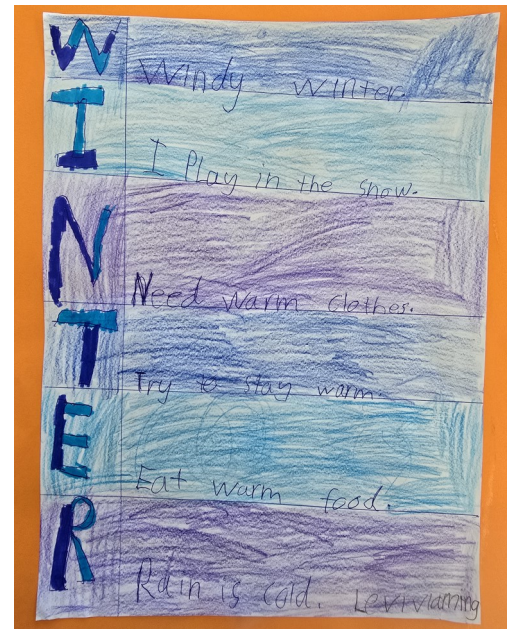 W Windy winter.
I I Play in the snow.
N Need warm clothes.
T Try to stay warm.
E Eat warm food.
R Rain is cold.